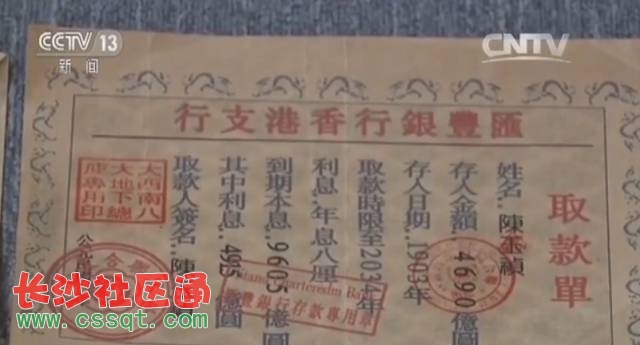 CCTV 13
新闻
CNTV
匯豐銀行香港支行
取款單
姓名:陳玉禎
存入金額:4690億圓
存入日期:1903年
取款時限至2034年
利息:年息八厘
到期本息:9605億圓
其中利息:4915億圓
取款人簽名:陳
大西南八
大地下總
庫專用印
匯豐銀行存款專用章
长沙社区通
www.cssqt.com